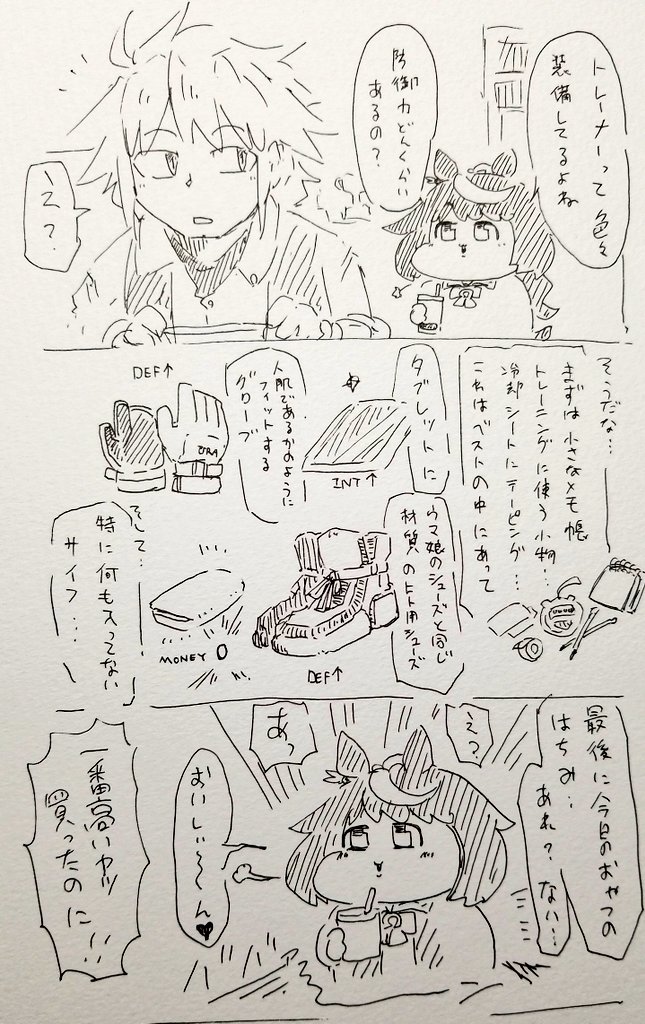 トレーナーって色々
装備してるよね
防御力どんくらい
あるの？
え？
そうだな…
まずは小さなメモ帳
トレーニングに使う小物…
冷却シートにテーピング…
これはベストの中にあって
タブレットに
INT↑
人肌であるかのように
フィットする
グローブ
DEF↑
URA
ウマ娘のシューズと同じ
材質のヒト用シューズ
DEF↑
そして…
特に何も入ってない
サイフ…
MONEY 0
最後に今日のおやつの
はちみ…
あれ？ない…
えっ
あっ
おいしい〜〜ん♥
一番高いヤツ
買ったのに…